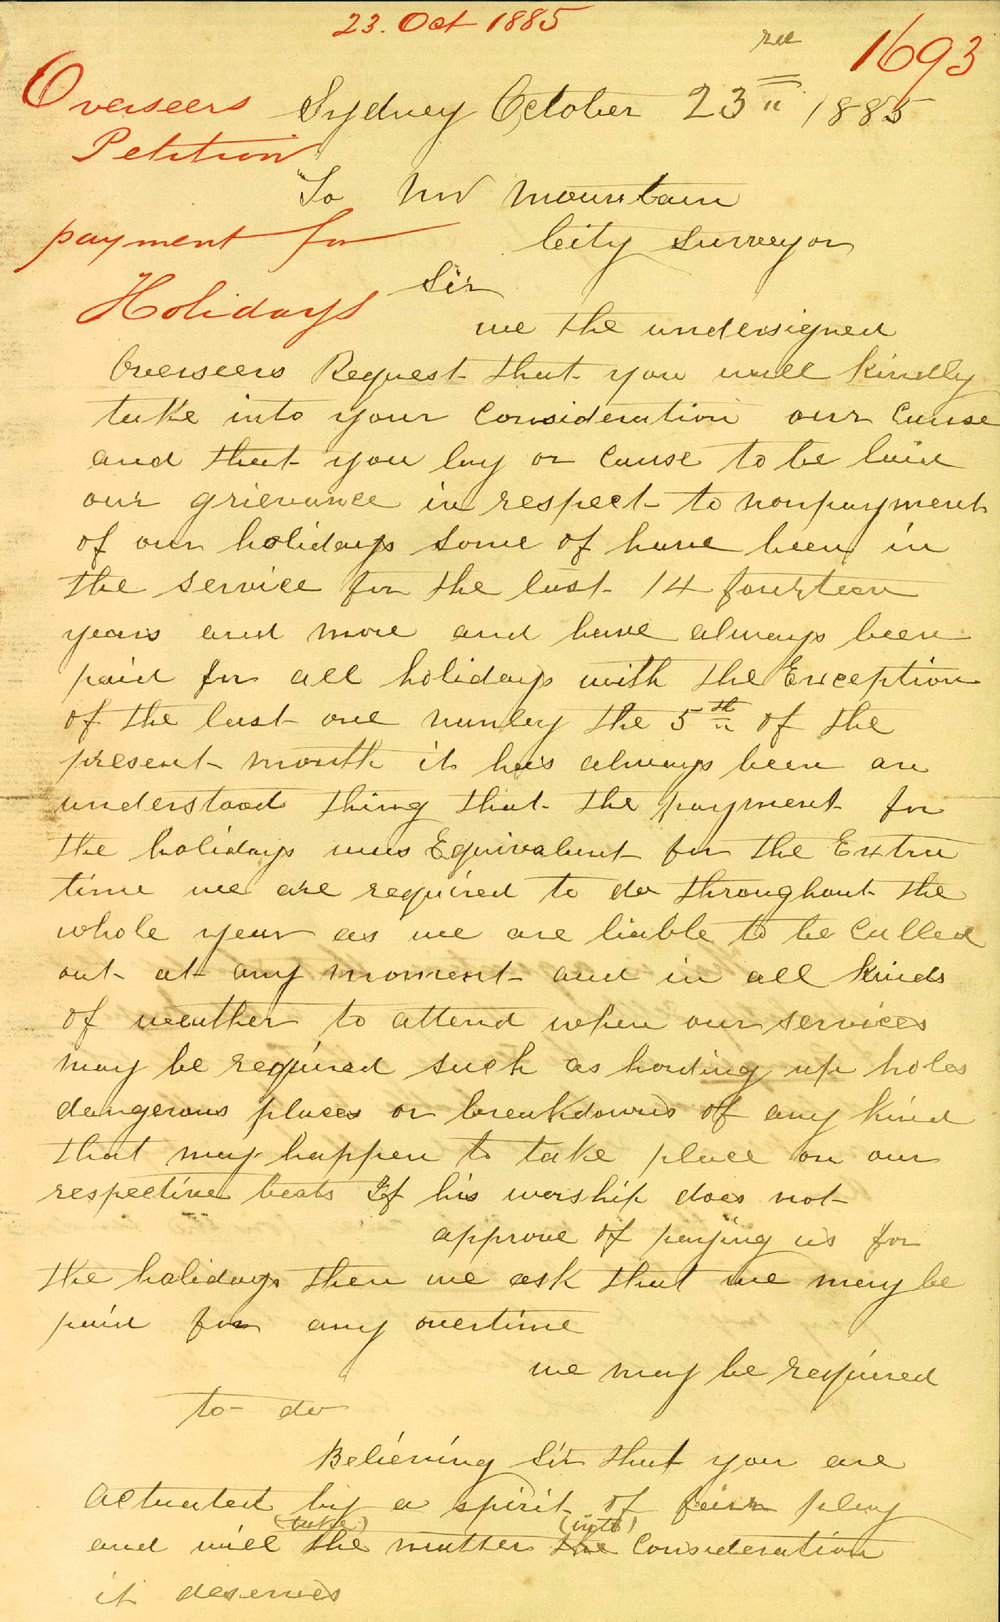 23. Oct 1885
1693
Overseers
Petition
payment for
Holidays
Sydney October 23rd 1885
To Mr Mountain
City Surveyor
Sir
we the undersigned
Overseers Request that you will kindly
take into your Consideration our Cause
and that you lay or cause to be laid
our grievance in respect to nonpayment
of our holidays some of have been in
the service for the last 14 fourteen
years and more and have always been
paid for all holidays with the Exception
of the last one namley the 5th of the
present month it has always been an
understood thing that the payment for
the holidays was Equivalent for the Extra
time we are required to do throughout the
whole year as we are liable to be Called
out at any moment and in all kinds
of weather to attend when our services
may be required such as hording up holes
dangerous places or breakdowns of any kind
that may happen to take place on our
respective beats If his worship does not
approve of paying us for
the holidays then we ask that we may be
paid for any overtime
we may be required
to do
Believing Sir that you are
actuated by a spirit of fair play
(take) (into)
and will the matter the Consideration
it deserves